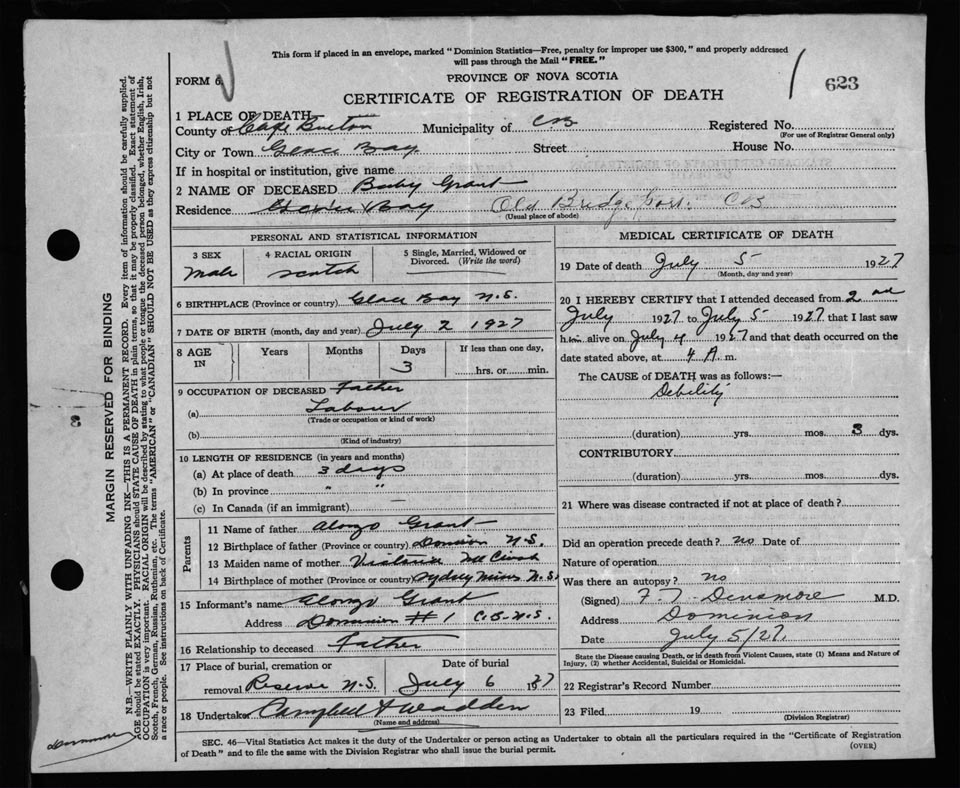 This form if placed in an envelope, marked "Dominion Statistics—Free, penalty for improper use $300," and properly addressed
will pass through the Mail "FREE."
FORM 6.
PROVINCE OF NOVA SCOTIA
623
CERTIFICATE OF REGISTRATION OF DEATH
1 PLACE OF DEATH
County of Cape Breton Municipality of C B Registered No.
(For use of Registrar General only)
City or Town Glace Bay Street House No.
If in hospital or institution, give name
2 NAME OF DECEASED Baby Grant
Residence Glace Bay Old Bridgeport C B
(Usual place of abode)
PERSONAL AND STATISTICAL INFORMATION
3 SEX 4 RACIAL ORIGIN 5 Single, Married, Widowed or
Divorced. (Write the word)
Male Scotch
6 BIRTHPLACE (Province or country) Glace Bay N.S.
7 DATE OF BIRTH (month, day and year) July 2 1927
8 AGE IN Years Months Days If less than one day,
3 hrs. or min.
9 OCCUPATION OF DECEASED Father
(a) Labour
(Trade or occupation or kind of work)
(b)
(Kind of industry)
10 LENGTH OF RESIDENCE (in years and months)
(a) At place of death 3 days
(b) In province " "
(c) In Canada (if an immigrant) —
Parents
11 Name of father Alonzo Grant
12 Birthplace of father (Province or country) Dominion N.S.
13 Maiden name of mother Victoria
14 Birthplace of mother (Province or country) Sydney Mines N.S.
15 Informant's name Alonzo Grant
Address Dominion #1 C.B. N.S.
16 Relationship to deceased Father
17 Place of burial, cremation or Date of burial
removal Reserve N.S. July 6 1927
18 Undertaker Campbell & Wadden
(Name and address)
MEDICAL CERTIFICATE OF DEATH
19 Date of death July 5 1927
(Month, day and year)
20 I HEREBY CERTIFY that I attended deceased from 2nd
July 1927 to July 5 1927 that I last saw
him alive on July 4 1927 and that death occurred on the
date stated above, at 4 A. m.
The CAUSE of DEATH was as follows:—
Debility
(duration) yrs. mos. 3 dys.
CONTRIBUTORY
(duration) yrs. mos. dys.
21 Where was disease contracted if not at place of death?
Did an operation precede death? no Date of
Nature of operation
Was there an autopsy? no
(Signed) F T Densmore M.D.
Address Dominion
Date July 5/27.
State the Disease causing Death, or in death from Violent Causes, state (1) Means and Nature of
Injury, (2) whether Accidental, Suicidal or Homicidal.
22 Registrar's Record Number
23 Filed 19
(Division Registrar)
SEC. 46—Vital Statistics Act makes it the duty of the Undertaker or person acting as Undertaker to obtain all the particulars required in the "Certificate of Registration
of Death" and to file the same with the Division Registrar who shall issue the burial permit.
(OVER)
MARGIN RESERVED FOR BINDING
N.B.—WRITE PLAINLY WITH UNFADING INK—THIS IS A PERMANENT RECORD. Every item of information should be carefully supplied.
AGE should be stated EXACTLY. PHYSICIANS should STATE CAUSE OF DEATH in plain terms, so that it may be properly classified. Exact statement of
OCCUPATION is very important. RACIAL ORIGIN will be described by stating to what people or tongue the deceased person belonged, whether English, Irish,
Scotch, French, German, Russian, Ruthenian, etc. The terms "AMERICAN" or "CANADIAN" SHOULD NOT BE USED as they express citizenship but not
a race or people. See instructions on back of Certificate.